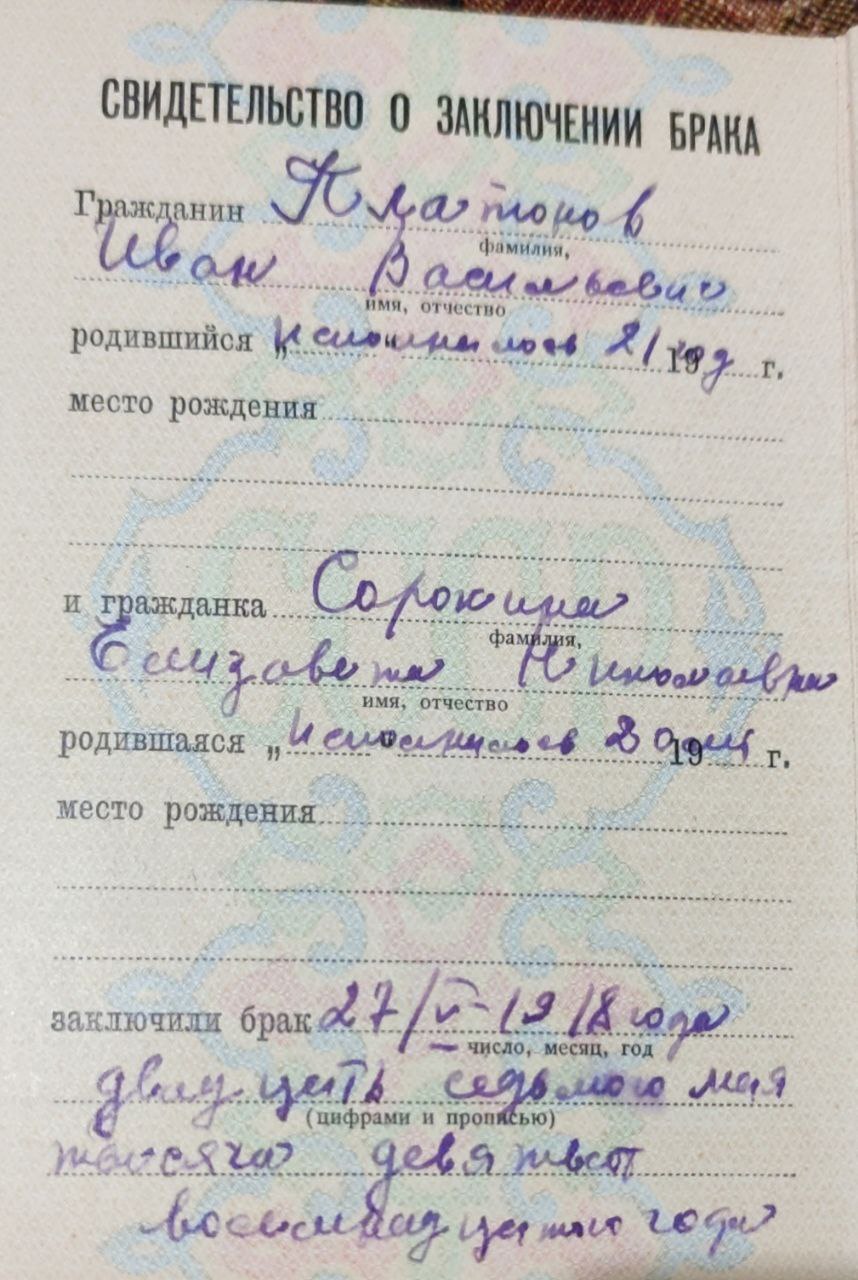 СВИДЕТЕЛЬСТВО О ЗАКЛЮЧЕНИИ БРАКА
Гражданин Платонов
фамилия,
Иван Васильевич
имя, отчество
родившийся „исполнилось 21 год 19 г.
место рождения
СССР
и гражданка Сорокина
фамилия,
Елизавета Николаевна
имя, отчество
родившаяся „исполнилось 20 лет 19 г.
место рождения
заключили брак 27/V-1918 года
число, месяц, год
двадцать седьмого мая
(цифрами и прописью)
тысяча девятьсот
восемнадцатого года